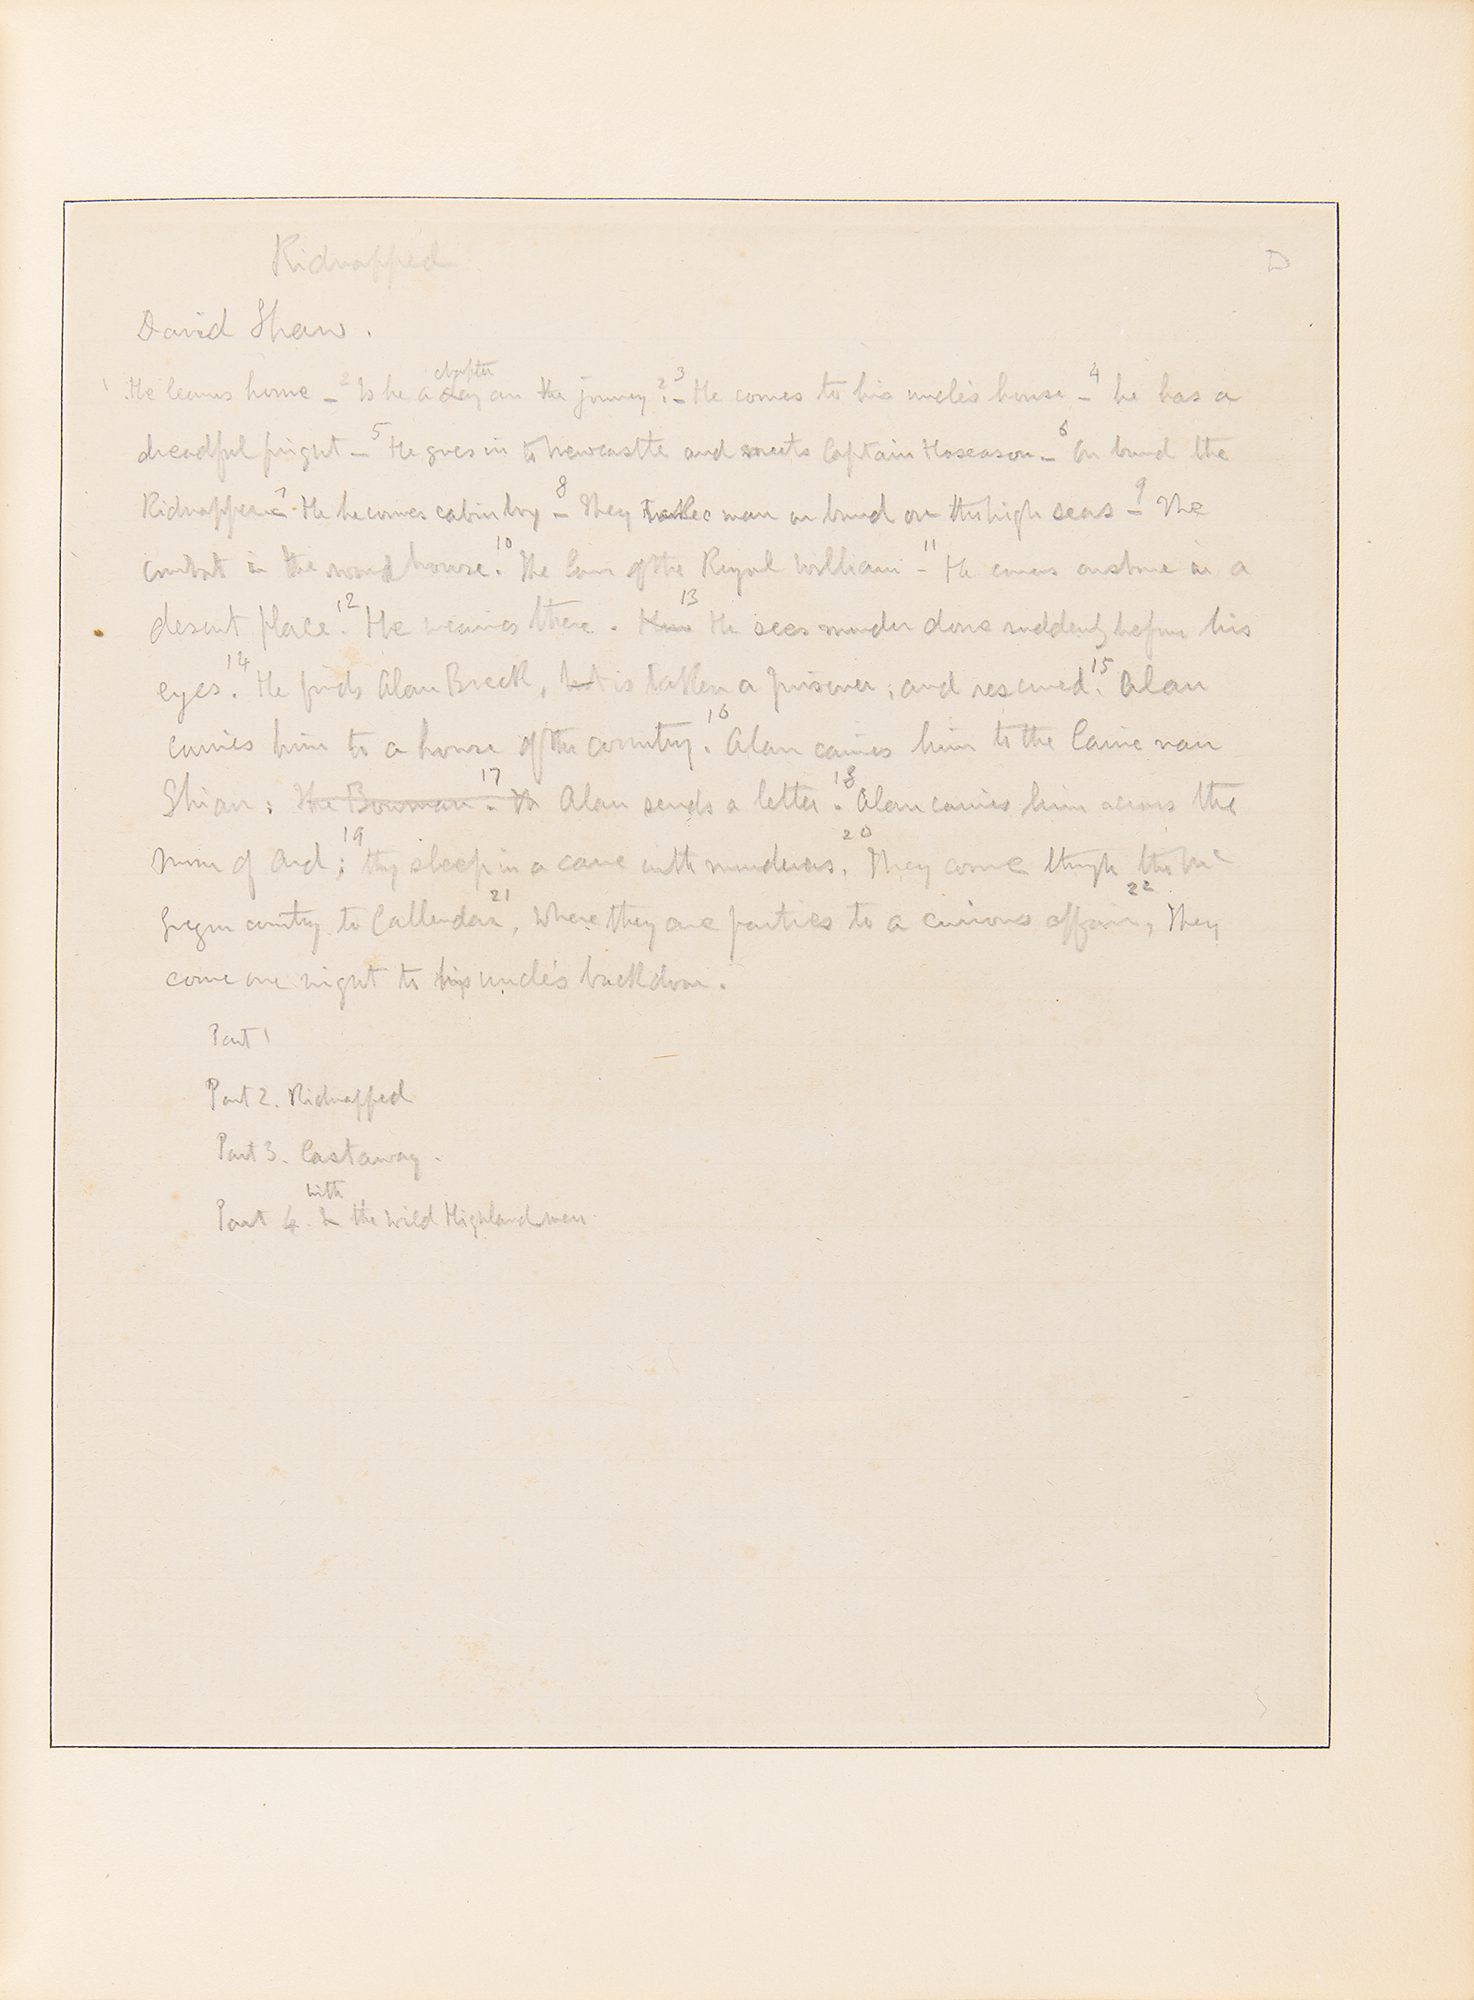 Kidnapped
D
David Shaw.
chapter
1 He leaves home – 2 Is he a day on the journey ? 3 – He comes to his uncle's house – 4 he has a
dreadful fright – 5 He goes in to Newcastle and meets Captain Hoseason – 6 On board the
Kidnapper – 7 He becomes cabin boy – 8 They take man on board on the high seas – 9 The
combat in the round house. 10 The loss of the Royal William – 11 He comes on shore in a
desert place. 12 He wearies there. 13 He sees murder done suddenly before his
eyes. 14 He finds Alan Breck, is taken a prisoner, and rescued. 15 Alan
carries him to a house of the country. 16 Alan carries him to the
The Bowman. 17 Alan sends a letter. 18 Alan carries him across the
Muir of Ard; 19 they sleep in a cave with murderers. 20 They come through the Mc
Gregor country to Callendar, 21 where they are parties to a curious affair, 22 They
come one night to his uncle's backdoor.
Part 1
Part 2. Kidnapped
Part 3. Castaway.
with
Part 4. In the wild Highlandmen